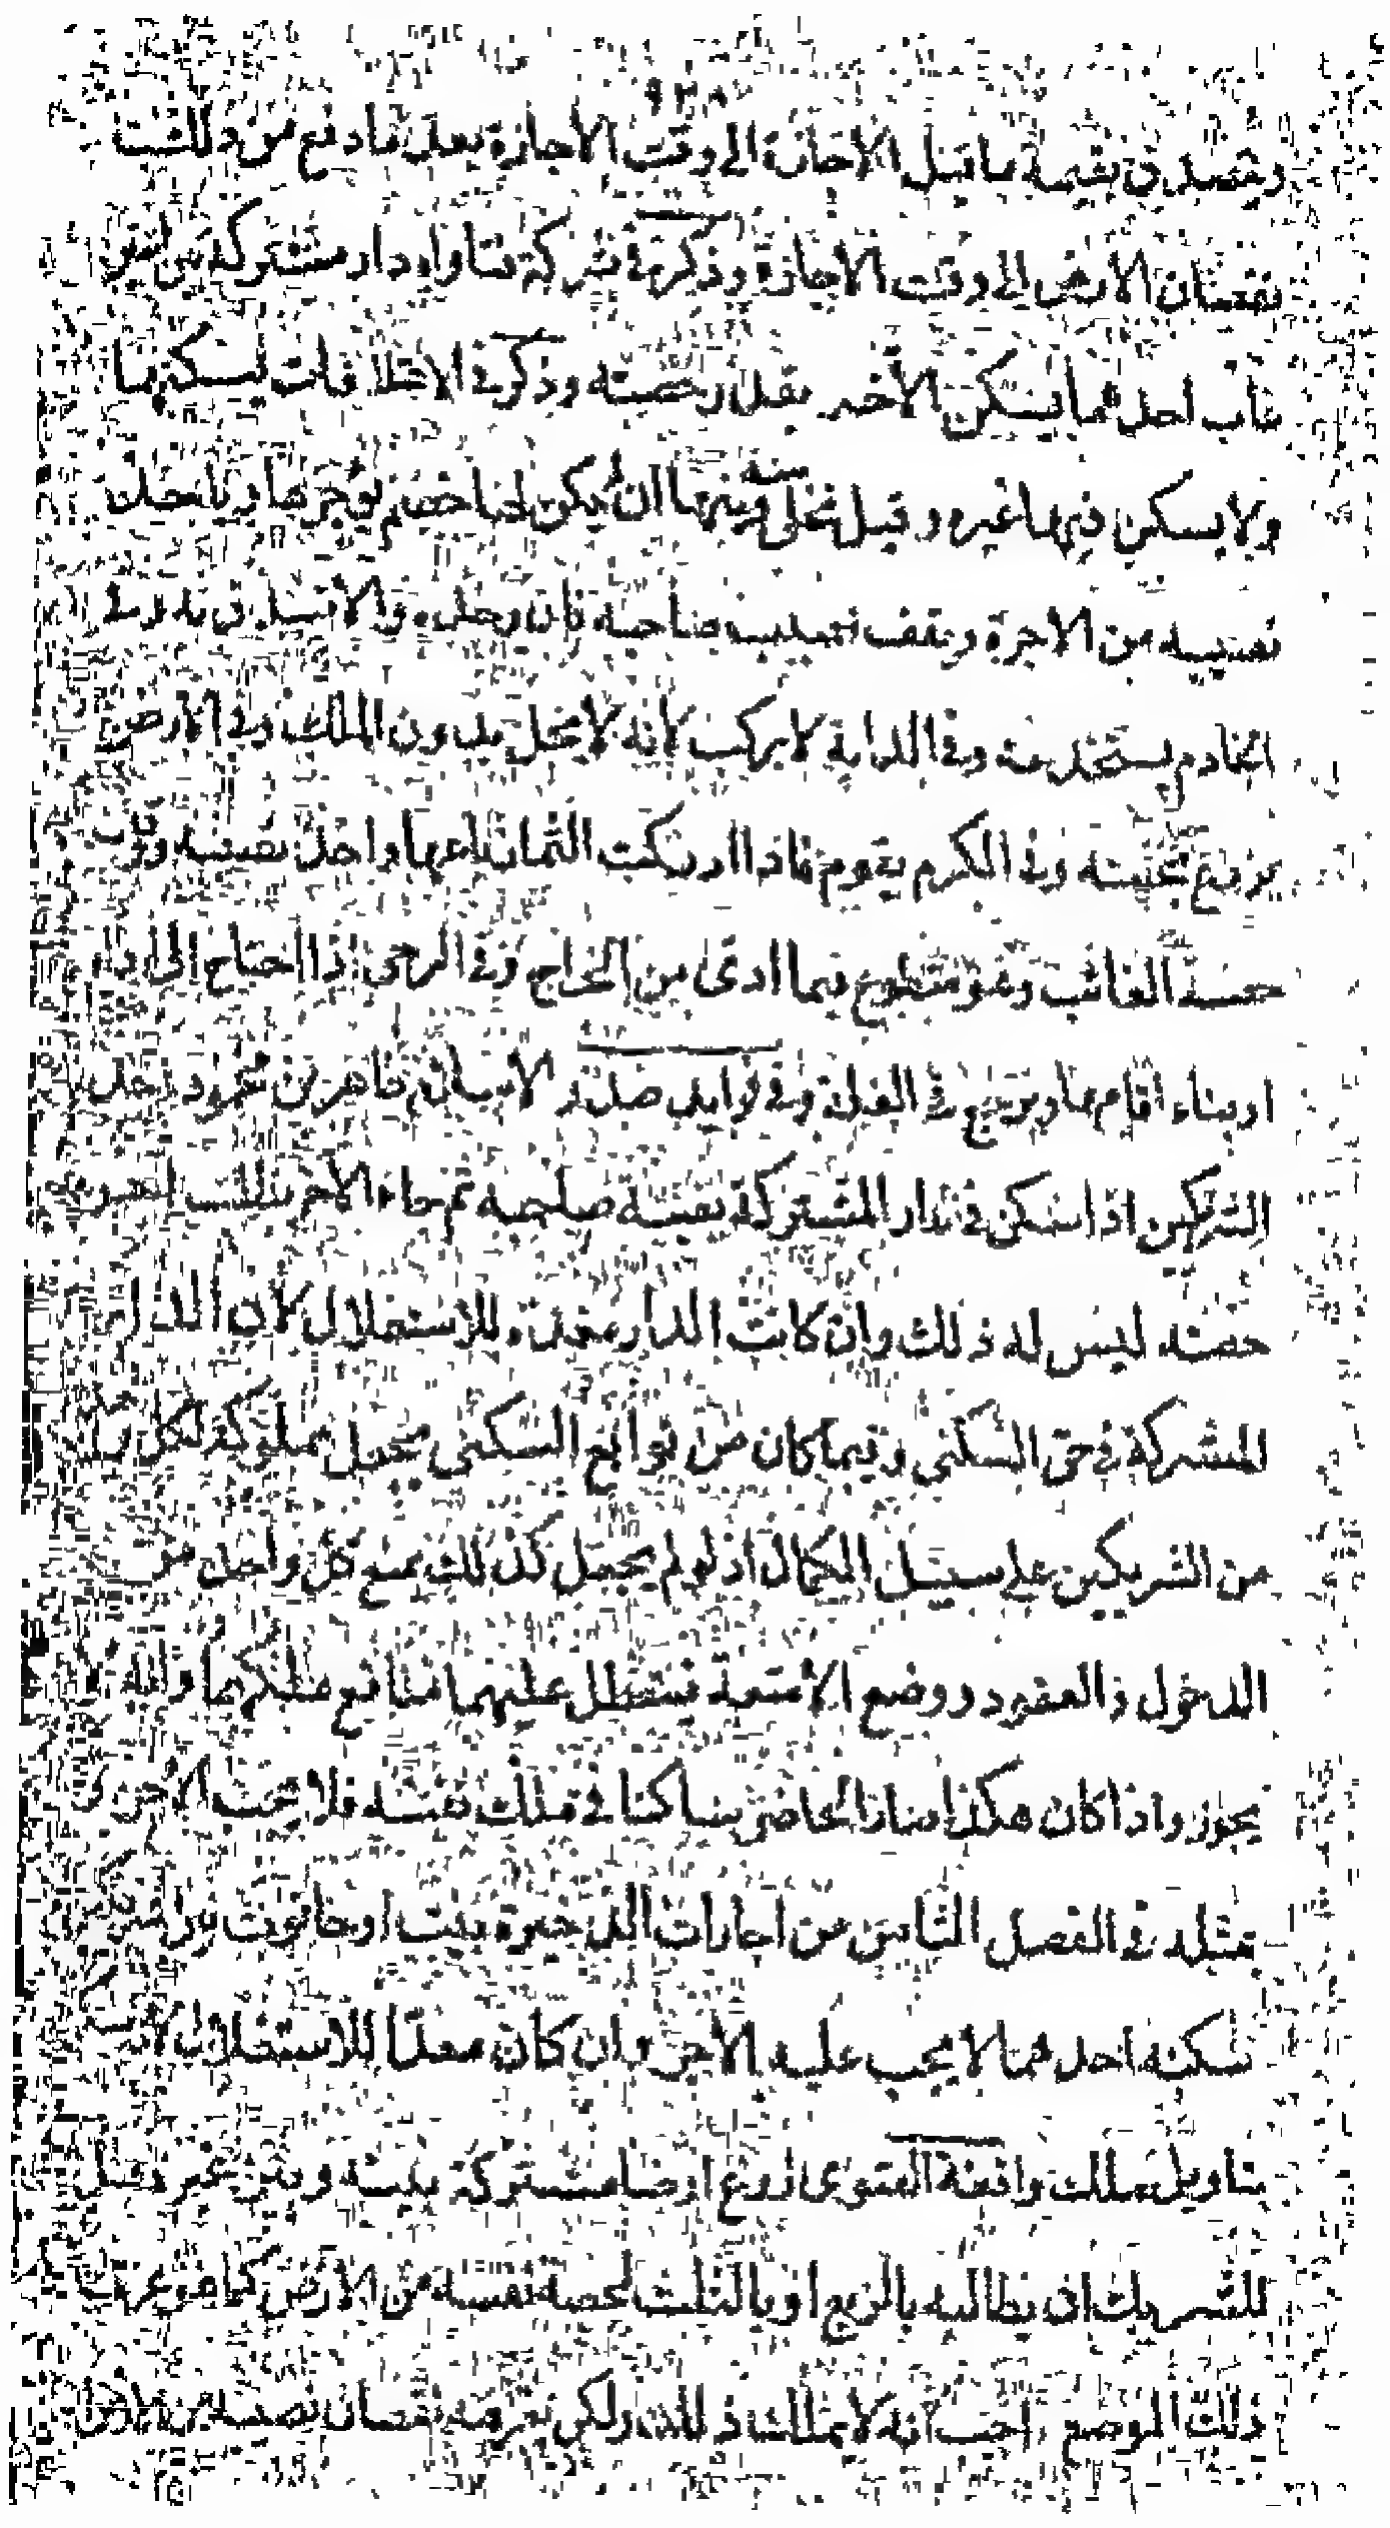 ويتصدق بقيمة ما قبل الاجازة الى وقت الاجازة بعد ما دفع من ذلك
نقصان الارض الى وقت الاجازة وذكر في شركة فتاواه دار مشتركة بين اثنين
غاب احدهما يسكن الآخر بقدر حصته وذكر في الاختلافات يسكنها
ولا يسكن فيها غيره وقيل بينها ان يكن لها خصم يؤجرها وياخذ
نصيبه من الاجرة ويقف نصيب صاحبه فان رضي والا تصدق به وفي
الخادم يستخدمه وفي الدابة لا يركب لانه لا يحل بدون الملك وفي الارض
يزرع بحصته وفي الكرم يقوم فاذا ادركت الثمار باعها واخذ نصيبه
حصة الغائب وهو متطوع فيما ادى من الخراج وفي الرحى اذا احتاج الى
او بناء اقامها ويرجع في الغلة وفي فوايد صدر الاسلام طاهر بن محمود احد
الشريكين اذا سكن في الدار المشتركة بغيبة صاحبه ثم جاء الآخر
حصته ليس له ذلك وان كانت الدار معدة للاستغلال لان الدار
المشتركة في حق السكنى وفيما كان من توابع السكنى يجعل مملوكة لكل
من الشريكين على سبيل الكمال اذ لو لم يجعل كذلك يمنع كل واحد من
الدخول والعقود ووضع الامتعة فتتعطل عليهما منافع ملكهما وانه لا
يجوز واذا كان هكذا صار الحاضر ساكنا في ملك نفسه فلا يجب الاجر
بمثله في الفصل الثامن من اجارات الذخيرة بيت او حانوت بين شريكين
سكنه احدهما لا يجب عليه الاجر وان كان معدا للاستغلال
بتاويل ملك واقعة الفتوى زرع ارضا مشتركة بينه وبين غيره هل
للشريك ان يطالبه بالربع او بالثلث لحصة نفسه من الارض كما هو عرف
ذلك الموضع اجيب انه لا يملك ذلك ولكن يغرمه نقصان نصيبه من الارض